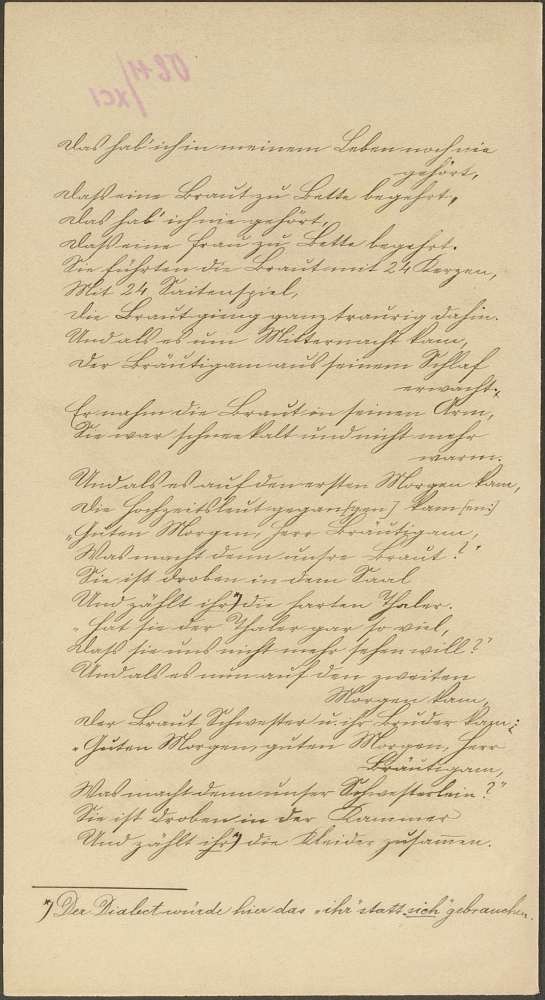 Das hab' ich in meinem Leben noch nie
gehört,
Dass eine Braut zu Bette begehrt,
Das hab' ich nie gehört,
Dass eine Frau zu Bette begehrt.
Sie führten die Braut mit 24 Kerzen,
Mit 24 Saitenspiel,
Die Braut gieng ganz traurig dahin.
Und als es um Mitternacht kam,
Der Bräutigam aus seinem Schlaf
erwacht.
Er nahm die Braut in seinen Arm,
Sie war schneekalt und nicht mehr
warm.
Und als es auf den ersten Morgen kam,
Die Hochzeitsleut gegan[gen] kam[en:]
"Guten Morgen, Herr Bräutigam,
Was macht denn unsre Braut?"
Sie ist droben in dem Saal
Und zählt ihr*) die harten Thaler.
"Hat sie der Thaler gar so viel,
Dass sie uns nicht mehr sehen will?"
Und als es nun auf den zweiten
Morgen kam,
Der Braut Schwester u. ihr Bruder kam:
"Guten Morgen, guten Morgen, Herr
Bräutigam,
Was macht denn unser Schwesterlein?"
Sie ist droben in der Kammer
Und zählt ihr*) die Kleider zusamen.
*) Der Dialect würde hier das "ihr" statt "sich" gebrauchen.